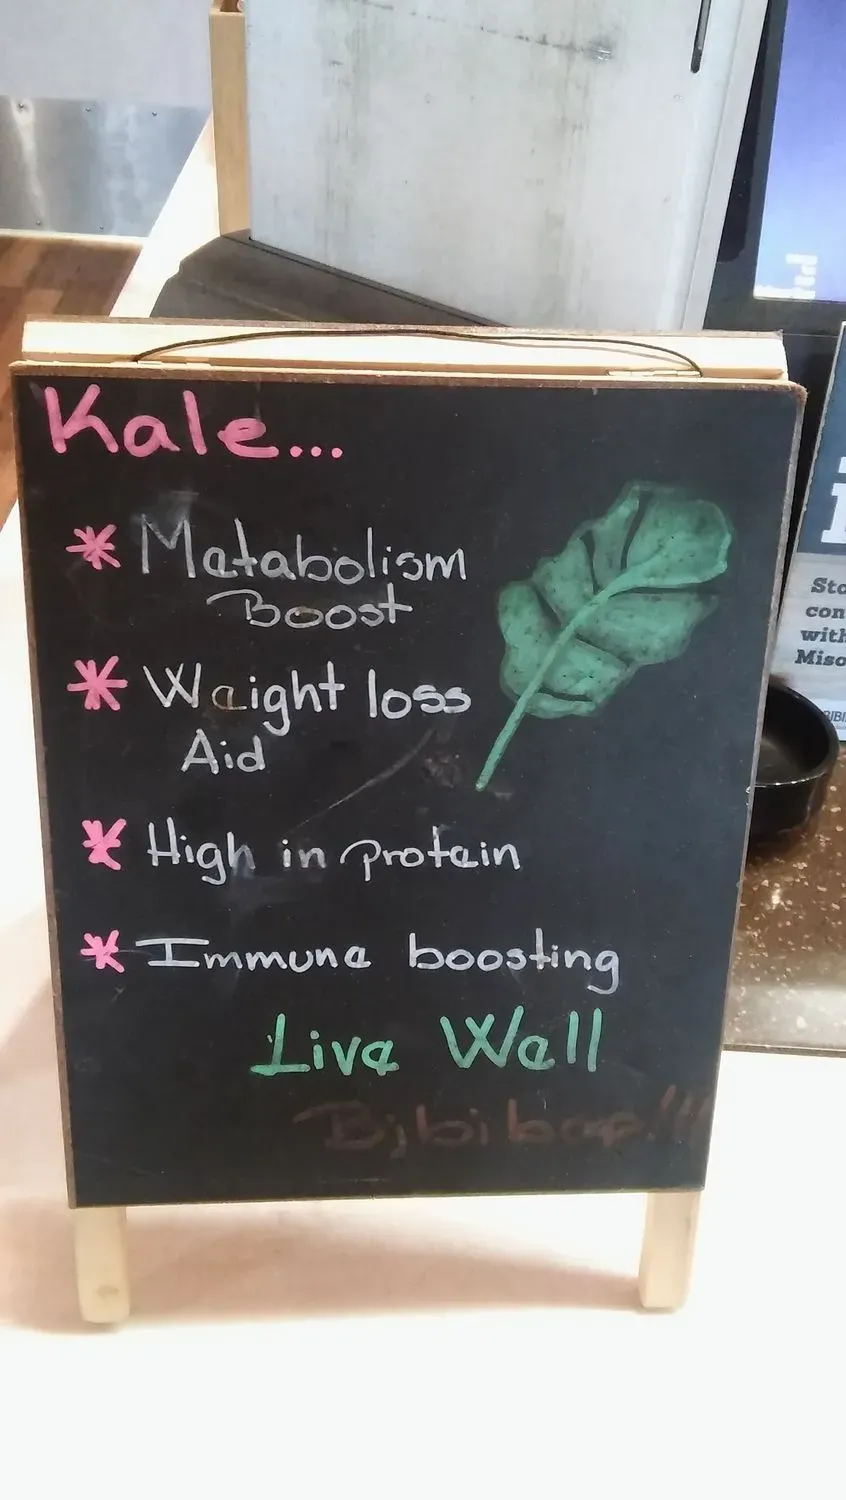 Kale...
* Metabolism
Boost
* Weight loss
Aid
* High in protein
* Immune boosting
Live Well
Bibibop!!!
Sto
con
with
Miso